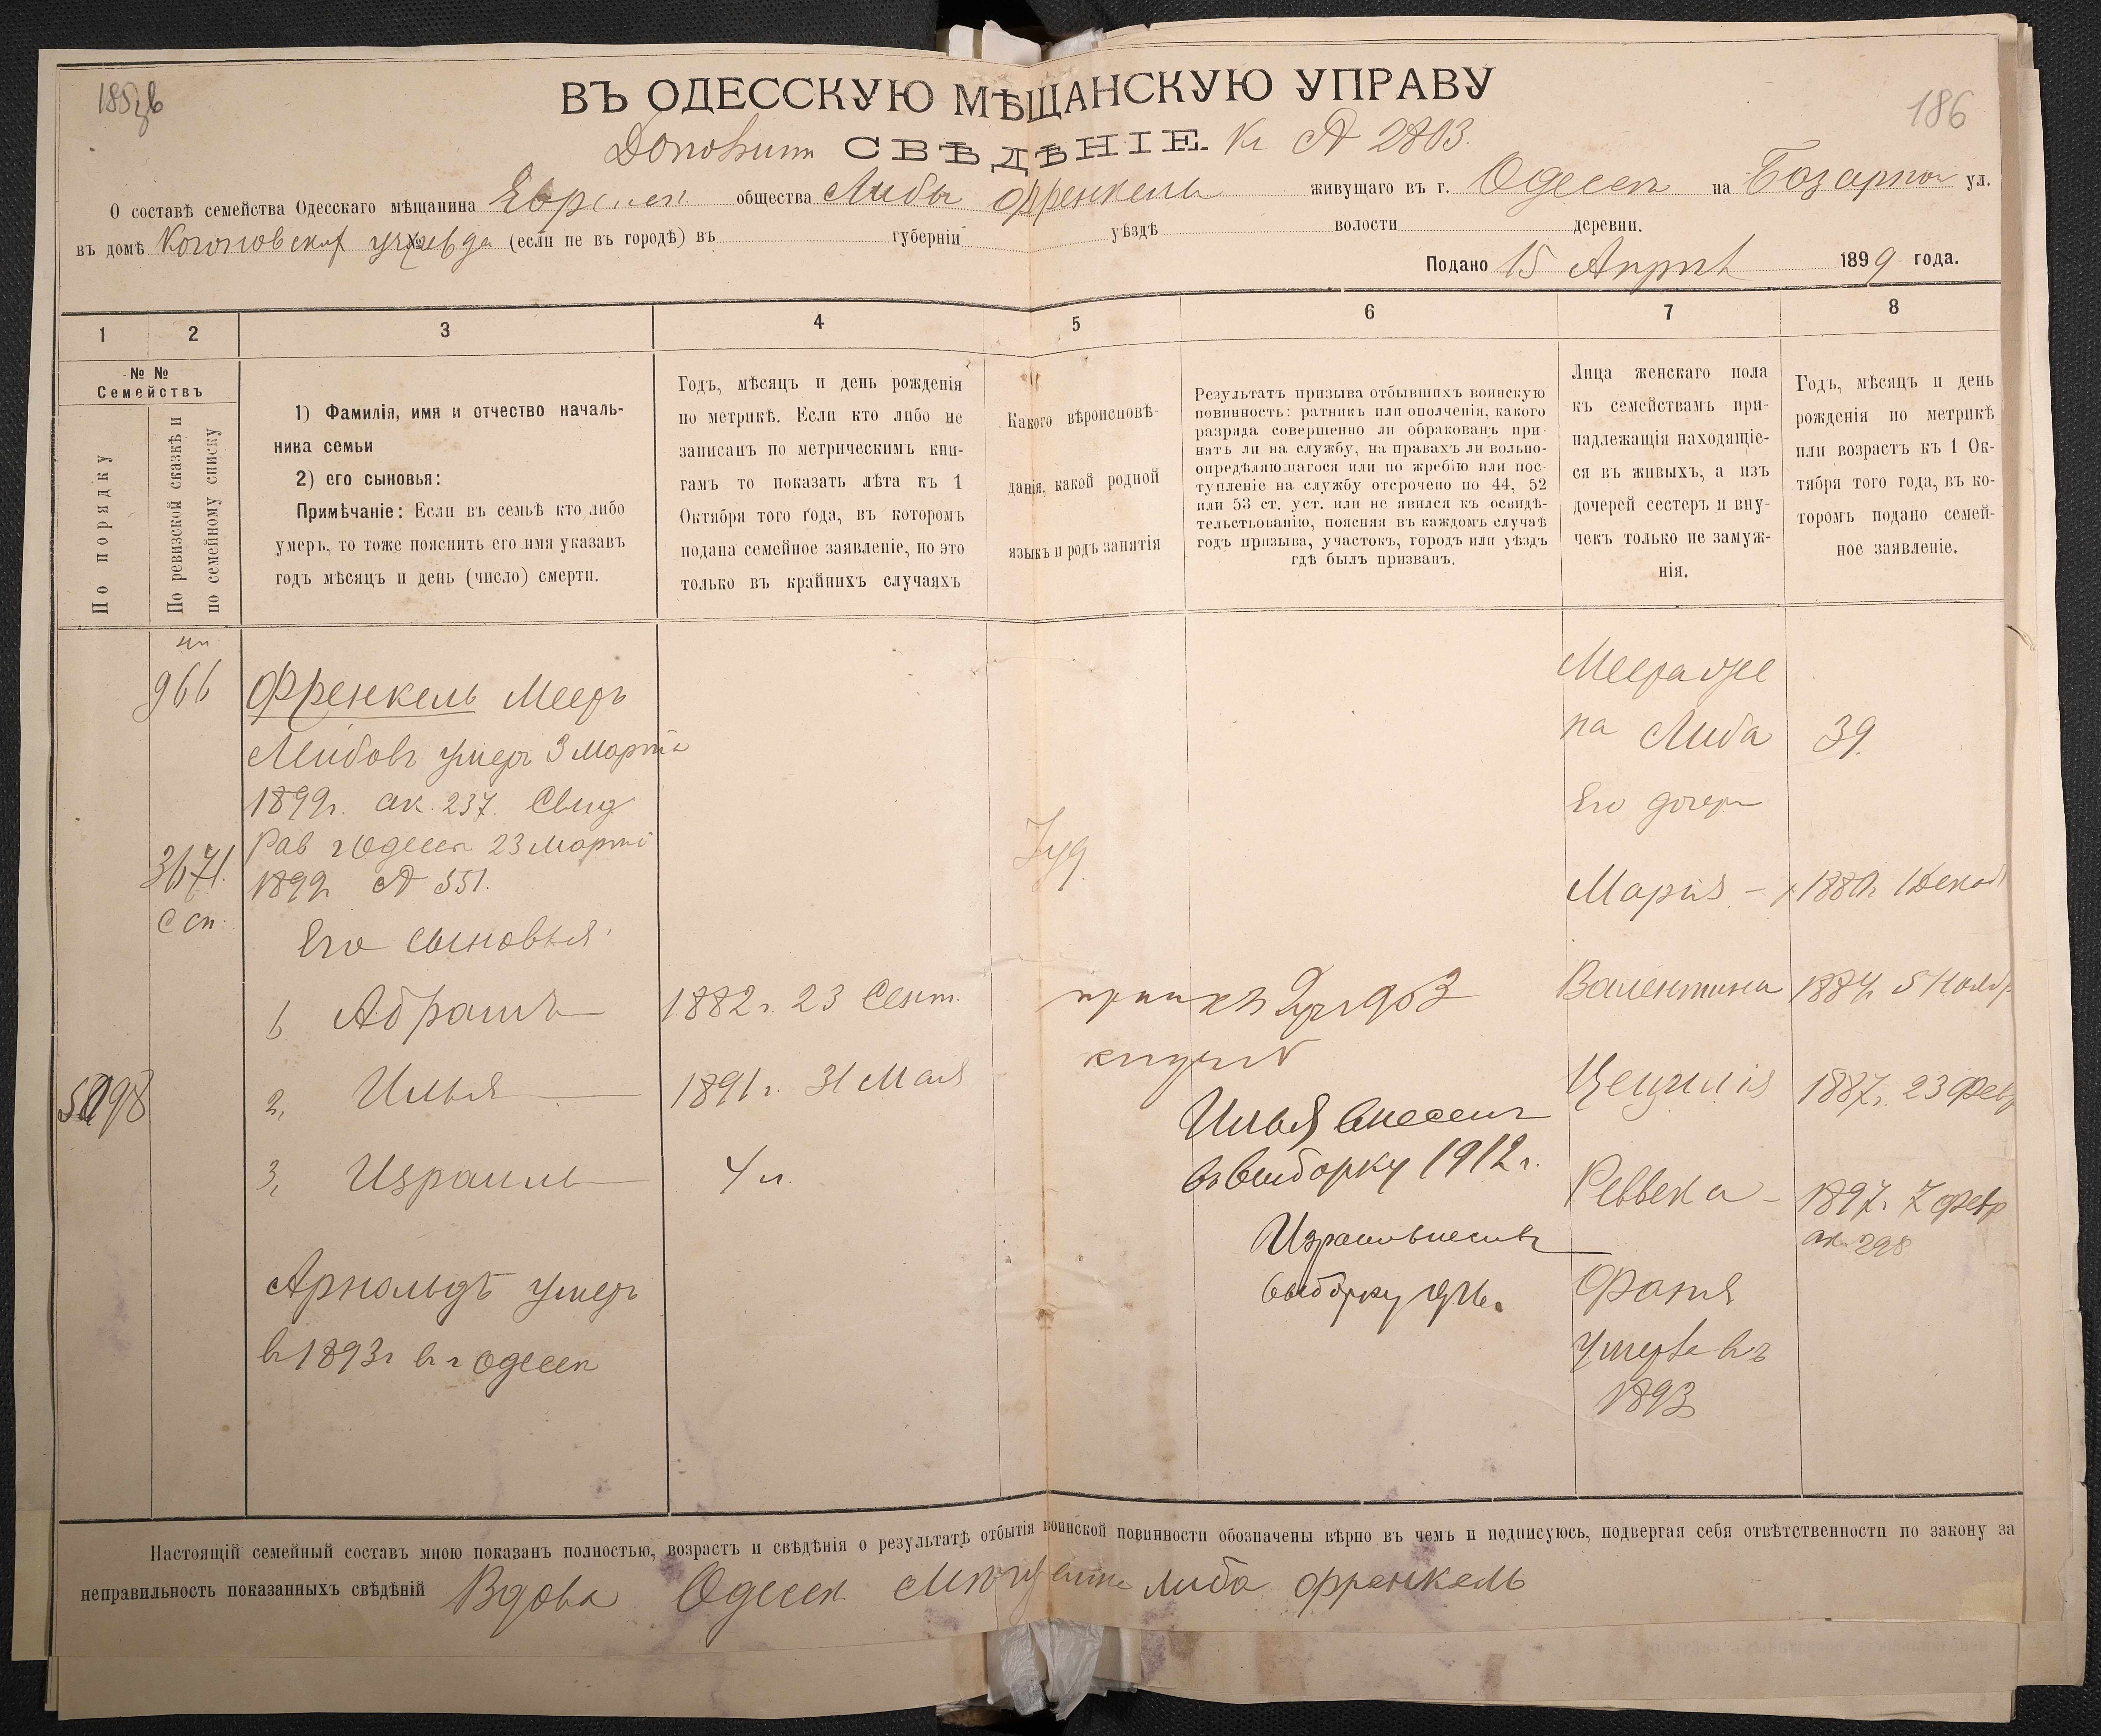 186
ВЪ ОДЕССКУЮ МѢЩАНСКУЮ УПРАВУ
СВѢДѢНІЕ. Къ № 2803.
О составѣ семейства Одесскаго мѣщанина общества Либы Френкель живущаго въ г. Одессѣ на Базарной ул.
въ домѣ (если не въ городѣ) въ губерніи уѣздѣ волости деревни.
Подано 15 Апрѣля 1899 года.
1 2 3 4 5 6 7 8
№ №
Семействъ
По порядку
По ревизской сказкѣ и
по семейному списку
1) Фамилія, имя и отчество началь-
ника семьи
2) его сыновья:
Примѣчаніе: Если въ семьѣ кто либо
умеръ, то тоже пояснить его имя указавъ
годъ мѣсяцъ и день (число) смерти.
Годъ, мѣсяцъ и день рожденія
по метрикѣ. Если кто либо не
записанъ по метрическимъ кни-
гамъ то показать лѣта къ 1
Октября того года, въ которомъ
подана семейное заявленіе, но это
только въ крайнихъ случаяхъ
Какого вѣроисповѣ-
данія, какой родной
языкъ и родъ занятія
Результатъ призыва отбывшихъ воинскую
повинность: ратникъ или ополченія, какого
разряда совершенно ли обракованъ при-
нятъ ли на службу, на правахъ ли вольно-
опредѣляющагося или по жребію или пос-
тупленіе на службу отсрочено по 44, 52
или 53 ст. уст. или не явился къ освидѣ-
тельствованію, поясняя въ каждомъ случаѣ
годъ призыва, участокъ, городъ или уѣздъ
гдѣ былъ призванъ.
Лица женскаго пола
къ семействамъ при-
надлежащія находящіе-
ся въ живыхъ, а изъ
дочерей сестеръ и вну-
чекъ только не замуж-
нія.
Годъ, мѣсяцъ и день
рожденія по метрикѣ
или возрастъ къ 1 Ок-
тября того года, въ ко-
торомъ подано семей-
ное заявленіе.
966
Френкель Мееръ
Лейбовъ умеръ 3 Марта
1899г. ак. 237. Свид
Рав г Одессы 23 Марта
1899 № 551.
3671.
С сп.
Его сыновья.
1 Абрамъ 1882 г. 23 Сент.
2, Илья 1891 г. 31 Мая
3, Израиль 4 л.
Арнольдъ умеръ
въ 1893г въ г Одессѣ
Іуд.
Илья внесенъ
въ выборку 1912 г.
выборку
Меера же
на Либа 39.
Его дочери
Марія 1880г. 1 Декаб
Валентина 1884г. 5 Ноябр
Цецилія 1887г. 23 Февр
Реввека 1897г. 7 февр
ак. 298
Фаня
умерла въ
1893
Настоящій семейный составъ мною показанъ полностью, возрастъ и свѣдѣнія о результатѣ отбытія воинской повинности обозначены вѣрно въ чемъ и подписуюсь, подвергая себя отвѣтственности по закону за
неправильность показанныхъ свѣдѣній Вдова Одесск. Мѣщанина Либа Френкель